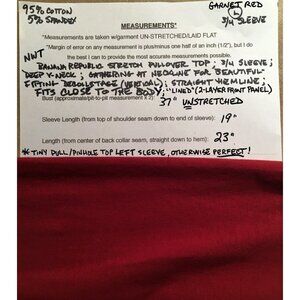 95% COTTON
5% SPANDEX
GARNET RED
L
3/4 SLEEVE
MEASUREMENTS*
*Measurements are taken w/garment UN-STRETCHED/LAID FLAT
*Margin of error on any measurement is plus/minus one half of an inch (1/2"), but I do
the best I can to provide the most accurate measurements possible.
NWT
BANANA REPUBLIC STRETCH PULLOVER TOP; 3/4 SLEEVE;
DEEP V-NECK; GATHERING AT NECKLINE FOR BEAUTIFUL-
FITTING DECOLLETAGE (VERTICAL); STRAIGHT HEMLINE;
FITS CLOSE TO THE BODY; "LINED" (2-LAYER FRONT PANEL)
Bust (approximated/pit-to-pit measurement X 2) 37" UNSTRETCHED
Sleeve Length (from top of shoulder seam down to end of sleeve): 19"
Length (from center of back collar seam, straight down to hem): 23"
* TINY PULL/PINHOLE TOP LEFT SLEEVE, OTHERWISE PERFECT!